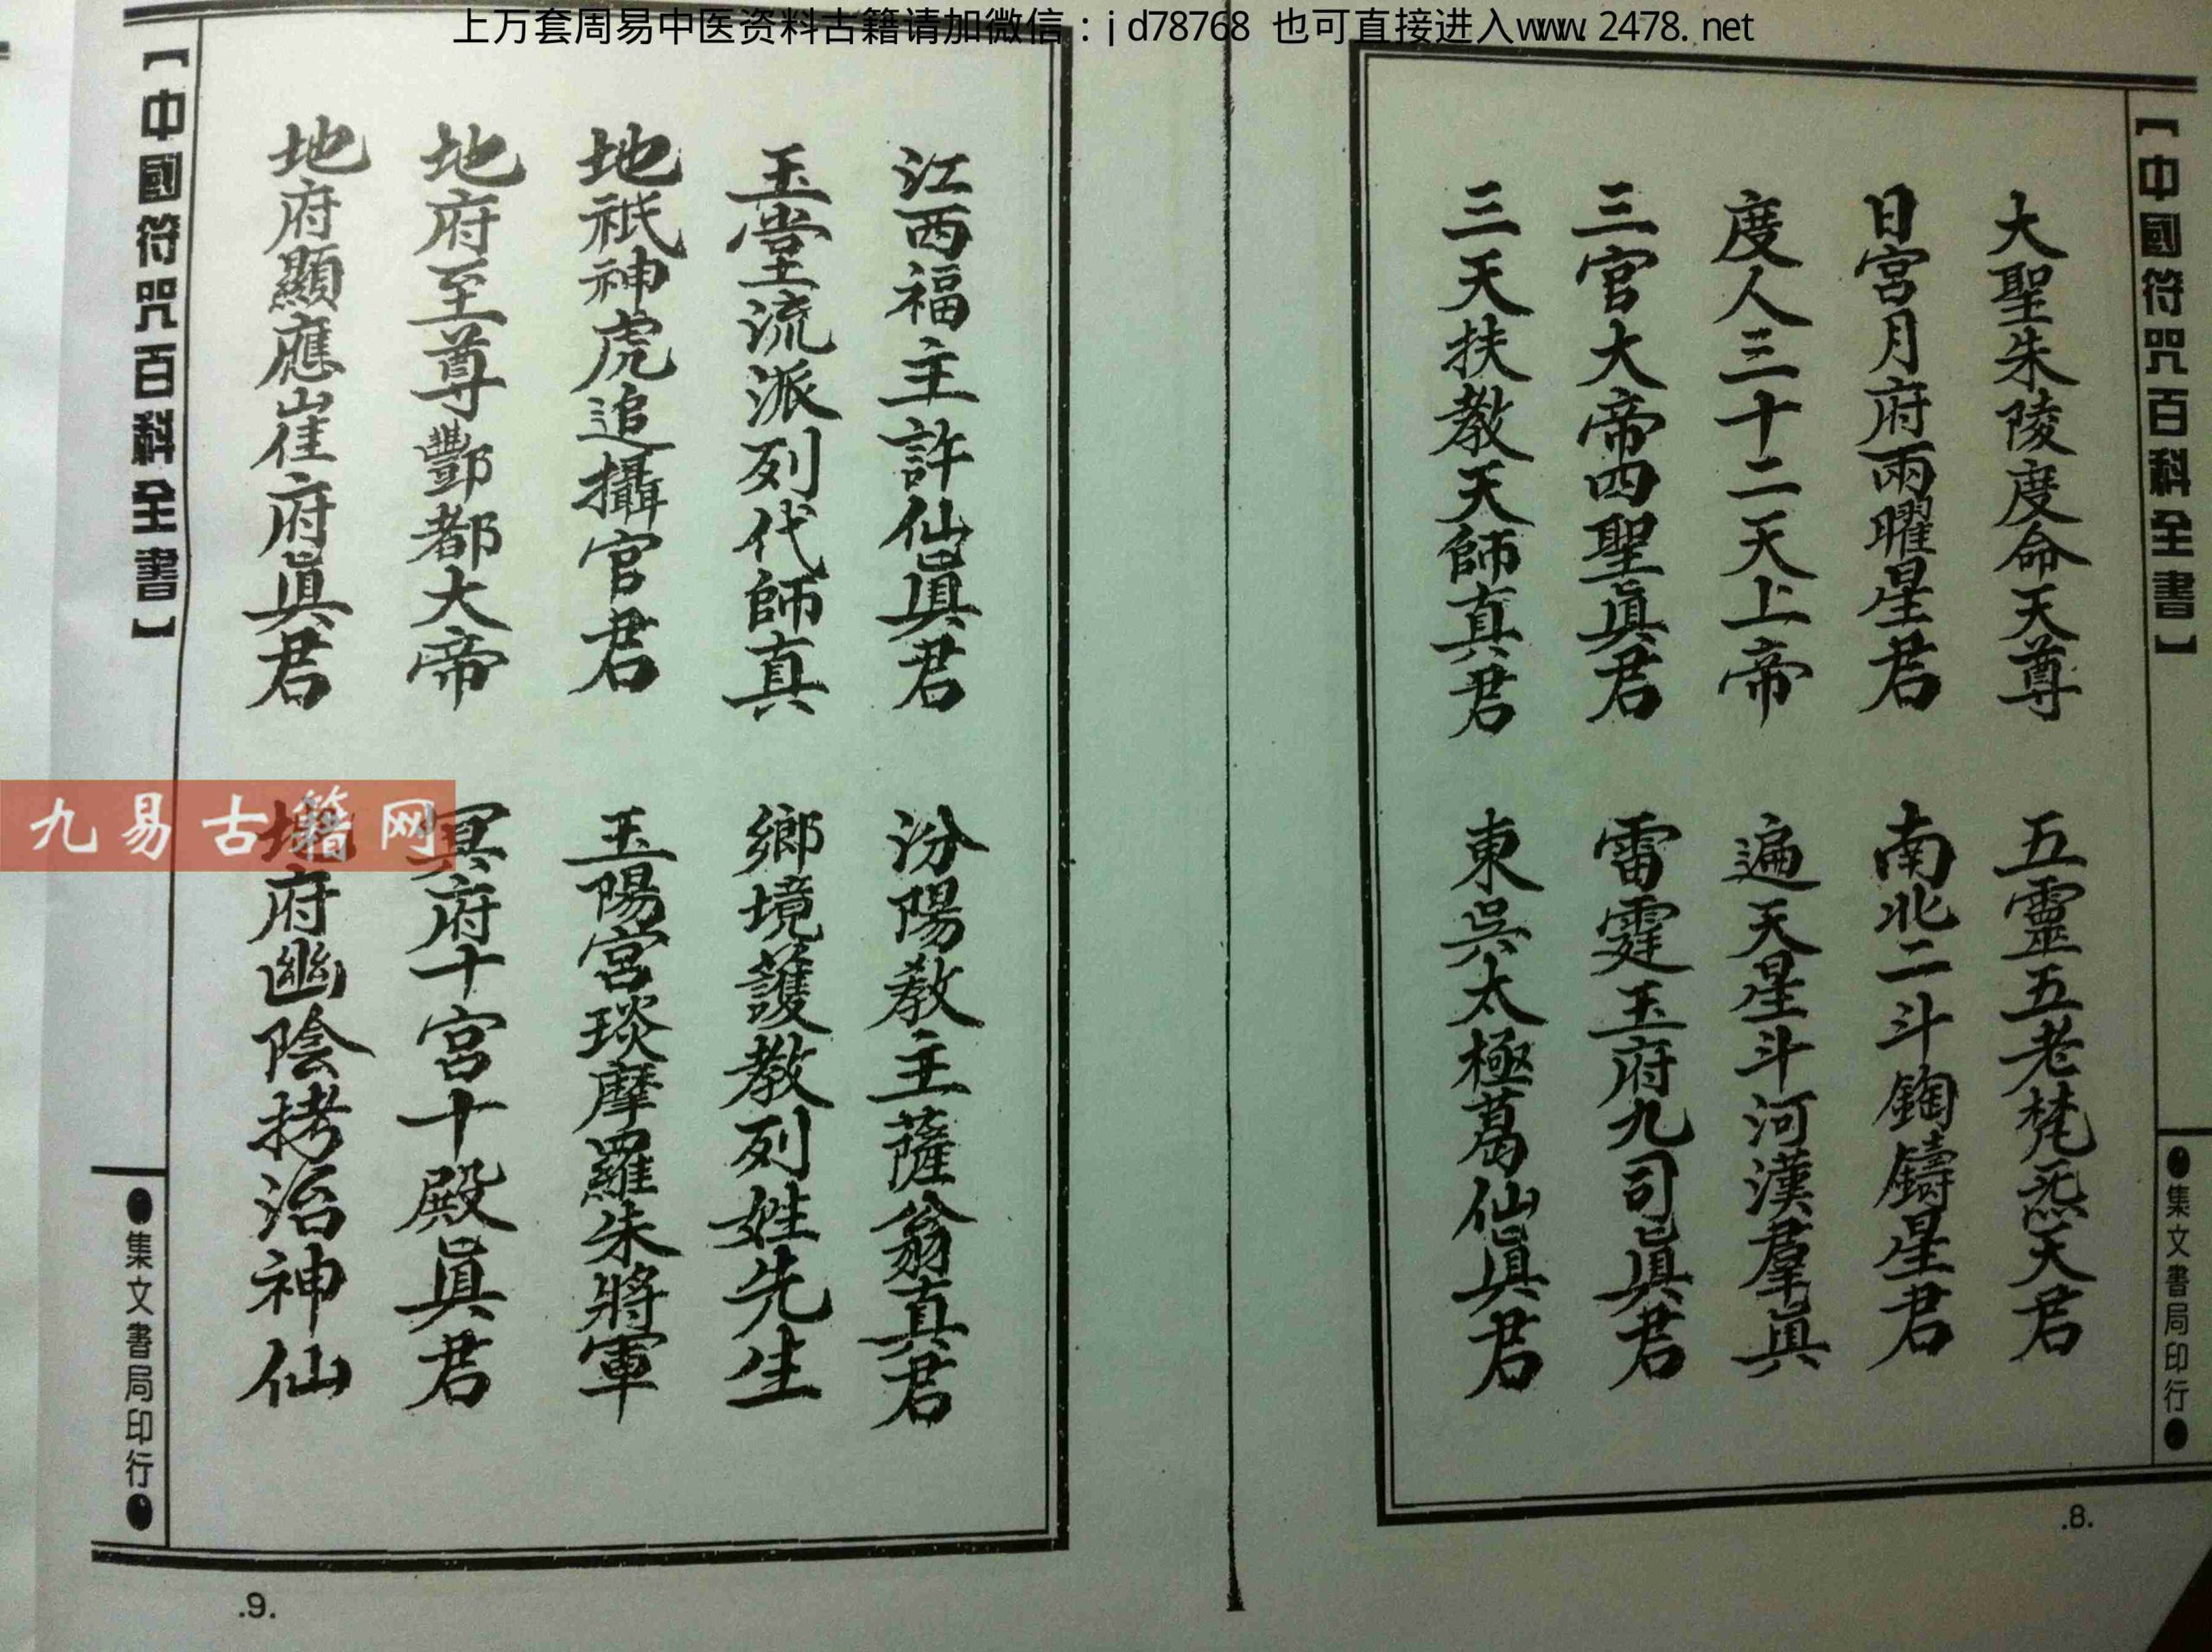 上万套周易中医资料古籍请加微信：jd78768 也可直接进入www.2478.net
【中國符咒百科全書】
大聖朱陵度命天尊
五靈五老梵炁天君
日宮月府兩曜星君
南北二斗鞫鑄星君
度人三十二天上帝
遍天星斗河漢羣眞
三官大帝四聖眞君
雷霆玉府九司眞君
三天扶教天師真君
東吳太極葛仙眞君
●集文書局印行●
.8.
江西福主許仙眞君
汾陽教主薩翁真君
玉堂流派列代師真
鄉境護教列姓先生
地祇神虎追攝官君
玉陽宮琰摩羅朱將軍
地府至尊酆都大帝
冥府十宮十殿眞君
地府顯應崔府眞君
地府幽陰拷治神仙
【中國符咒百科全書】
●集文書局印行●
.9.
九易古籍网